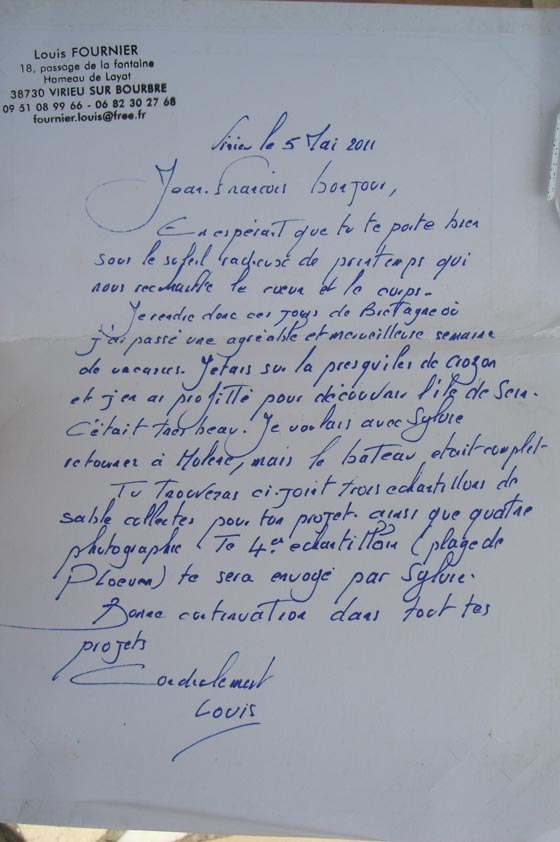 Louis FOURNIER
18, passage de la fontaine
Hameau de Layat
38730 VIRIEU SUR BOURBRE
09 51 08 99 66 - 06 82 30 27 68
fournier.louis@free.fr
Virieu le 5 Mai 2011
Jean-François bonjour,
En espérant que tu te porte bien
sous le soleil radieuse de printemps qui
nous rechauffe le cœur et le corps-
donc ces jours de Bretagne où
j'ai passé une agréable et merveilleuse semaine
de vacances. J'etais sur la presqu'iles de Crozon
et j'en ai profitté pour découvrir l'ile de Sein.
C'était tres beau. Je voulais avec Sylvie
retourner à Molene, mais le bateau etait complet-
Tu trouveras ci-joint trois echantillons de
sable collectes pour ton projet ainsi que quatre
photographie. Te 4e echantillon (plage de
Ploeven) te sera envoyé par Sylvie.
Bonne continuation dans tout tes
projets
Cordialement
Louis